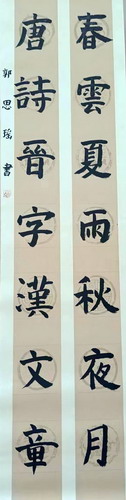 春雲夏雨秋夜月
唐詩晉字漢文章
郭思瑤書